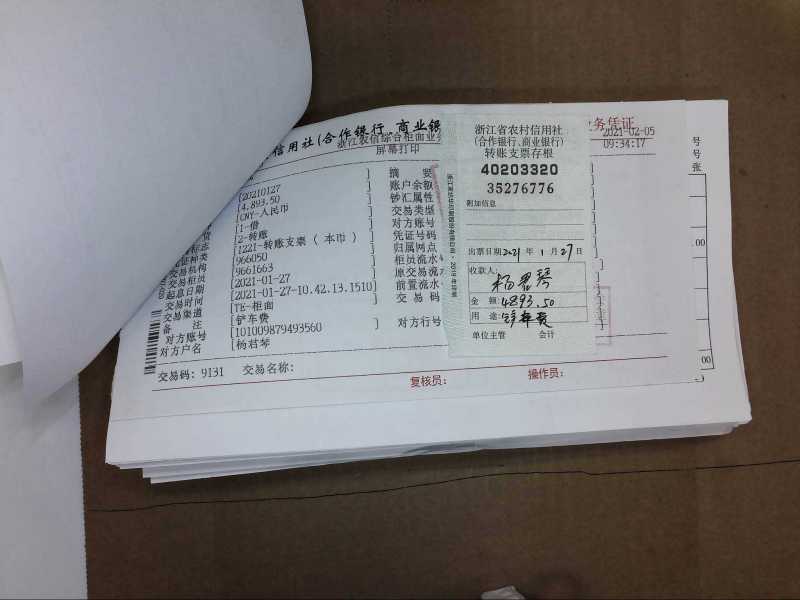 信用社(合作银行、商业银
务凭证
浙江农信综合柜面业务
屏幕打印
2021-02-05
09:34:17
[20210127 ]
[4,893.50
[CNY-人民币
[1-借
[2-转账
[1221-转账支票(本币) ]
[966050 ]
[9661663 ]
[2021-01-27 ]
[2021-01-27-10.42.13.1510]
[TE-柜面 ]
[铲车费 ]
[101009879493560 ]
[杨君琴 ]
种类
交易机构
交易柜员
起息日期
交易时间
交易渠道
备 注
对方账号
对方户名
摘 要
账户余额
钞汇属性
交易类型
对方账号
凭证号码
归属网点
柜员流水
原交易流水
前置流水
交 易 码
对方行号
交易码: 9131 交易名称:
复核员: 操作员:
浙江省农村信用社
(合作银行、商业银行)
转账支票存根
40203320
35276776
附加信息
出票日期 2021 年 1 月 27 日
收款人:
杨君琴
金 额: 4893.50
用 途: 铲车费
单位主管 会计
号
号
张
.00
00